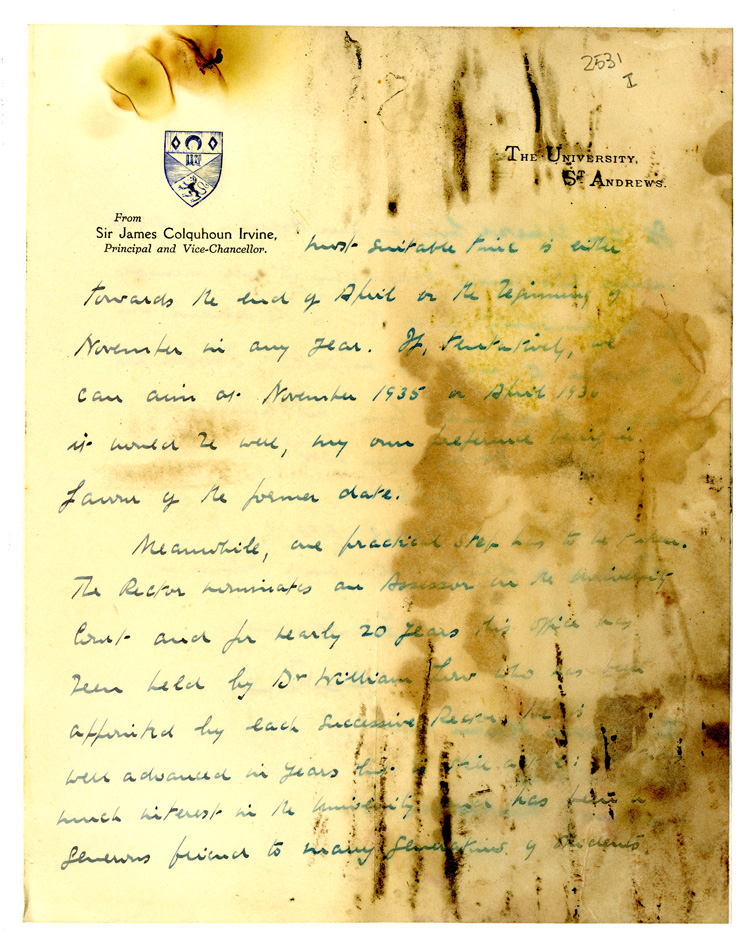 2531
I
THE UNIVERSITY,
ST ANDREWS.
From
Sir James Colquhoun Irvine,
Principal and Vice-Chancellor.
most suitable time is either
towards the end of April or the beginning of
November in any year. If, tentatively, we
can aim at November 1935 or April 1936
it would be well, my own preference being in
favour of the former date.
Meanwhile, one practical step has to be taken.
The Rector nominates an Assessor on the University
Court and for nearly 20 years this office has
been held by Dr William Low who has been
appointed by each successive Rector. He is
well advanced in years but
much interest in the University and has been a
generous friend to many generations of students.